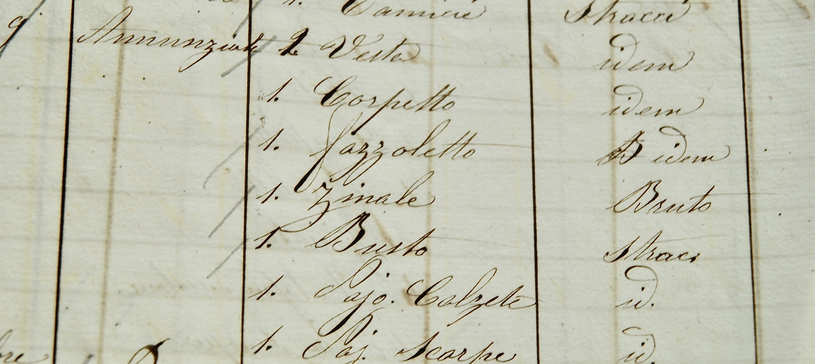 1. Camicie Stracci
Annunziata 2 Vesta idem
1. Corpetto idem
1. Fazzoletto idem
1. Zinale Bruto
1. Busto Straci
1. Pajo. Calzete id.
1. Paj. Scarpe id.